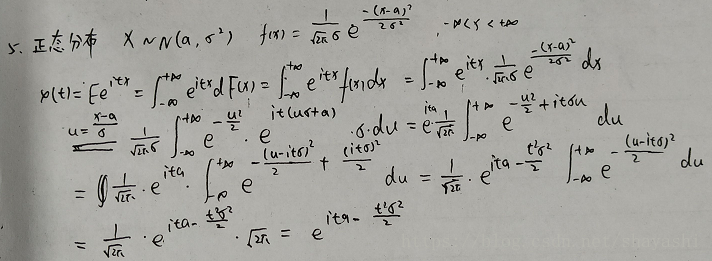 5. 正态分布 X ~ N(a, σ²) f(x) = \frac{1}{\sqrt{2π}σ} e^{\frac{-(x-a)²}{2σ²}}, -∞<x<+∞
φ(t) = Ee^{itx} = ∫_{-∞}^{+∞} e^{itx} dF(x) = ∫_{-∞}^{+∞} e^{itx} f(x) dx = ∫_{-∞}^{+∞} e^{itx} · \frac{1}{\sqrt{2π}σ} e^{\frac{-(x-a)²}{2σ²}} dx
u = \frac{x-a}{σ} \frac{1}{\sqrt{2π}σ} ∫_{-∞}^{+∞} e^{-\frac{u²}{2}} · e^{it(uσ+a)} · σ · du = e^{ita} · \frac{1}{\sqrt{2π}} ∫_{-∞}^{+∞} e^{-\frac{u²}{2} + itσu} du
= \frac{1}{\sqrt{2π}} · e^{ita} · ∫_{-∞}^{+∞} e^{-\frac{(u-itσ)²}{2} + \frac{(itσ)²}{2}} du = \frac{1}{\sqrt{2π}} · e^{ita - \frac{t²σ²}{2}} ∫_{-∞}^{+∞} e^{-\frac{(u-itσ)²}{2}} du
= \frac{1}{\sqrt{2π}} · e^{ita - \frac{t²σ²}{2}} · \sqrt{2π} = e^{ita - \frac{t²σ²}{2}}